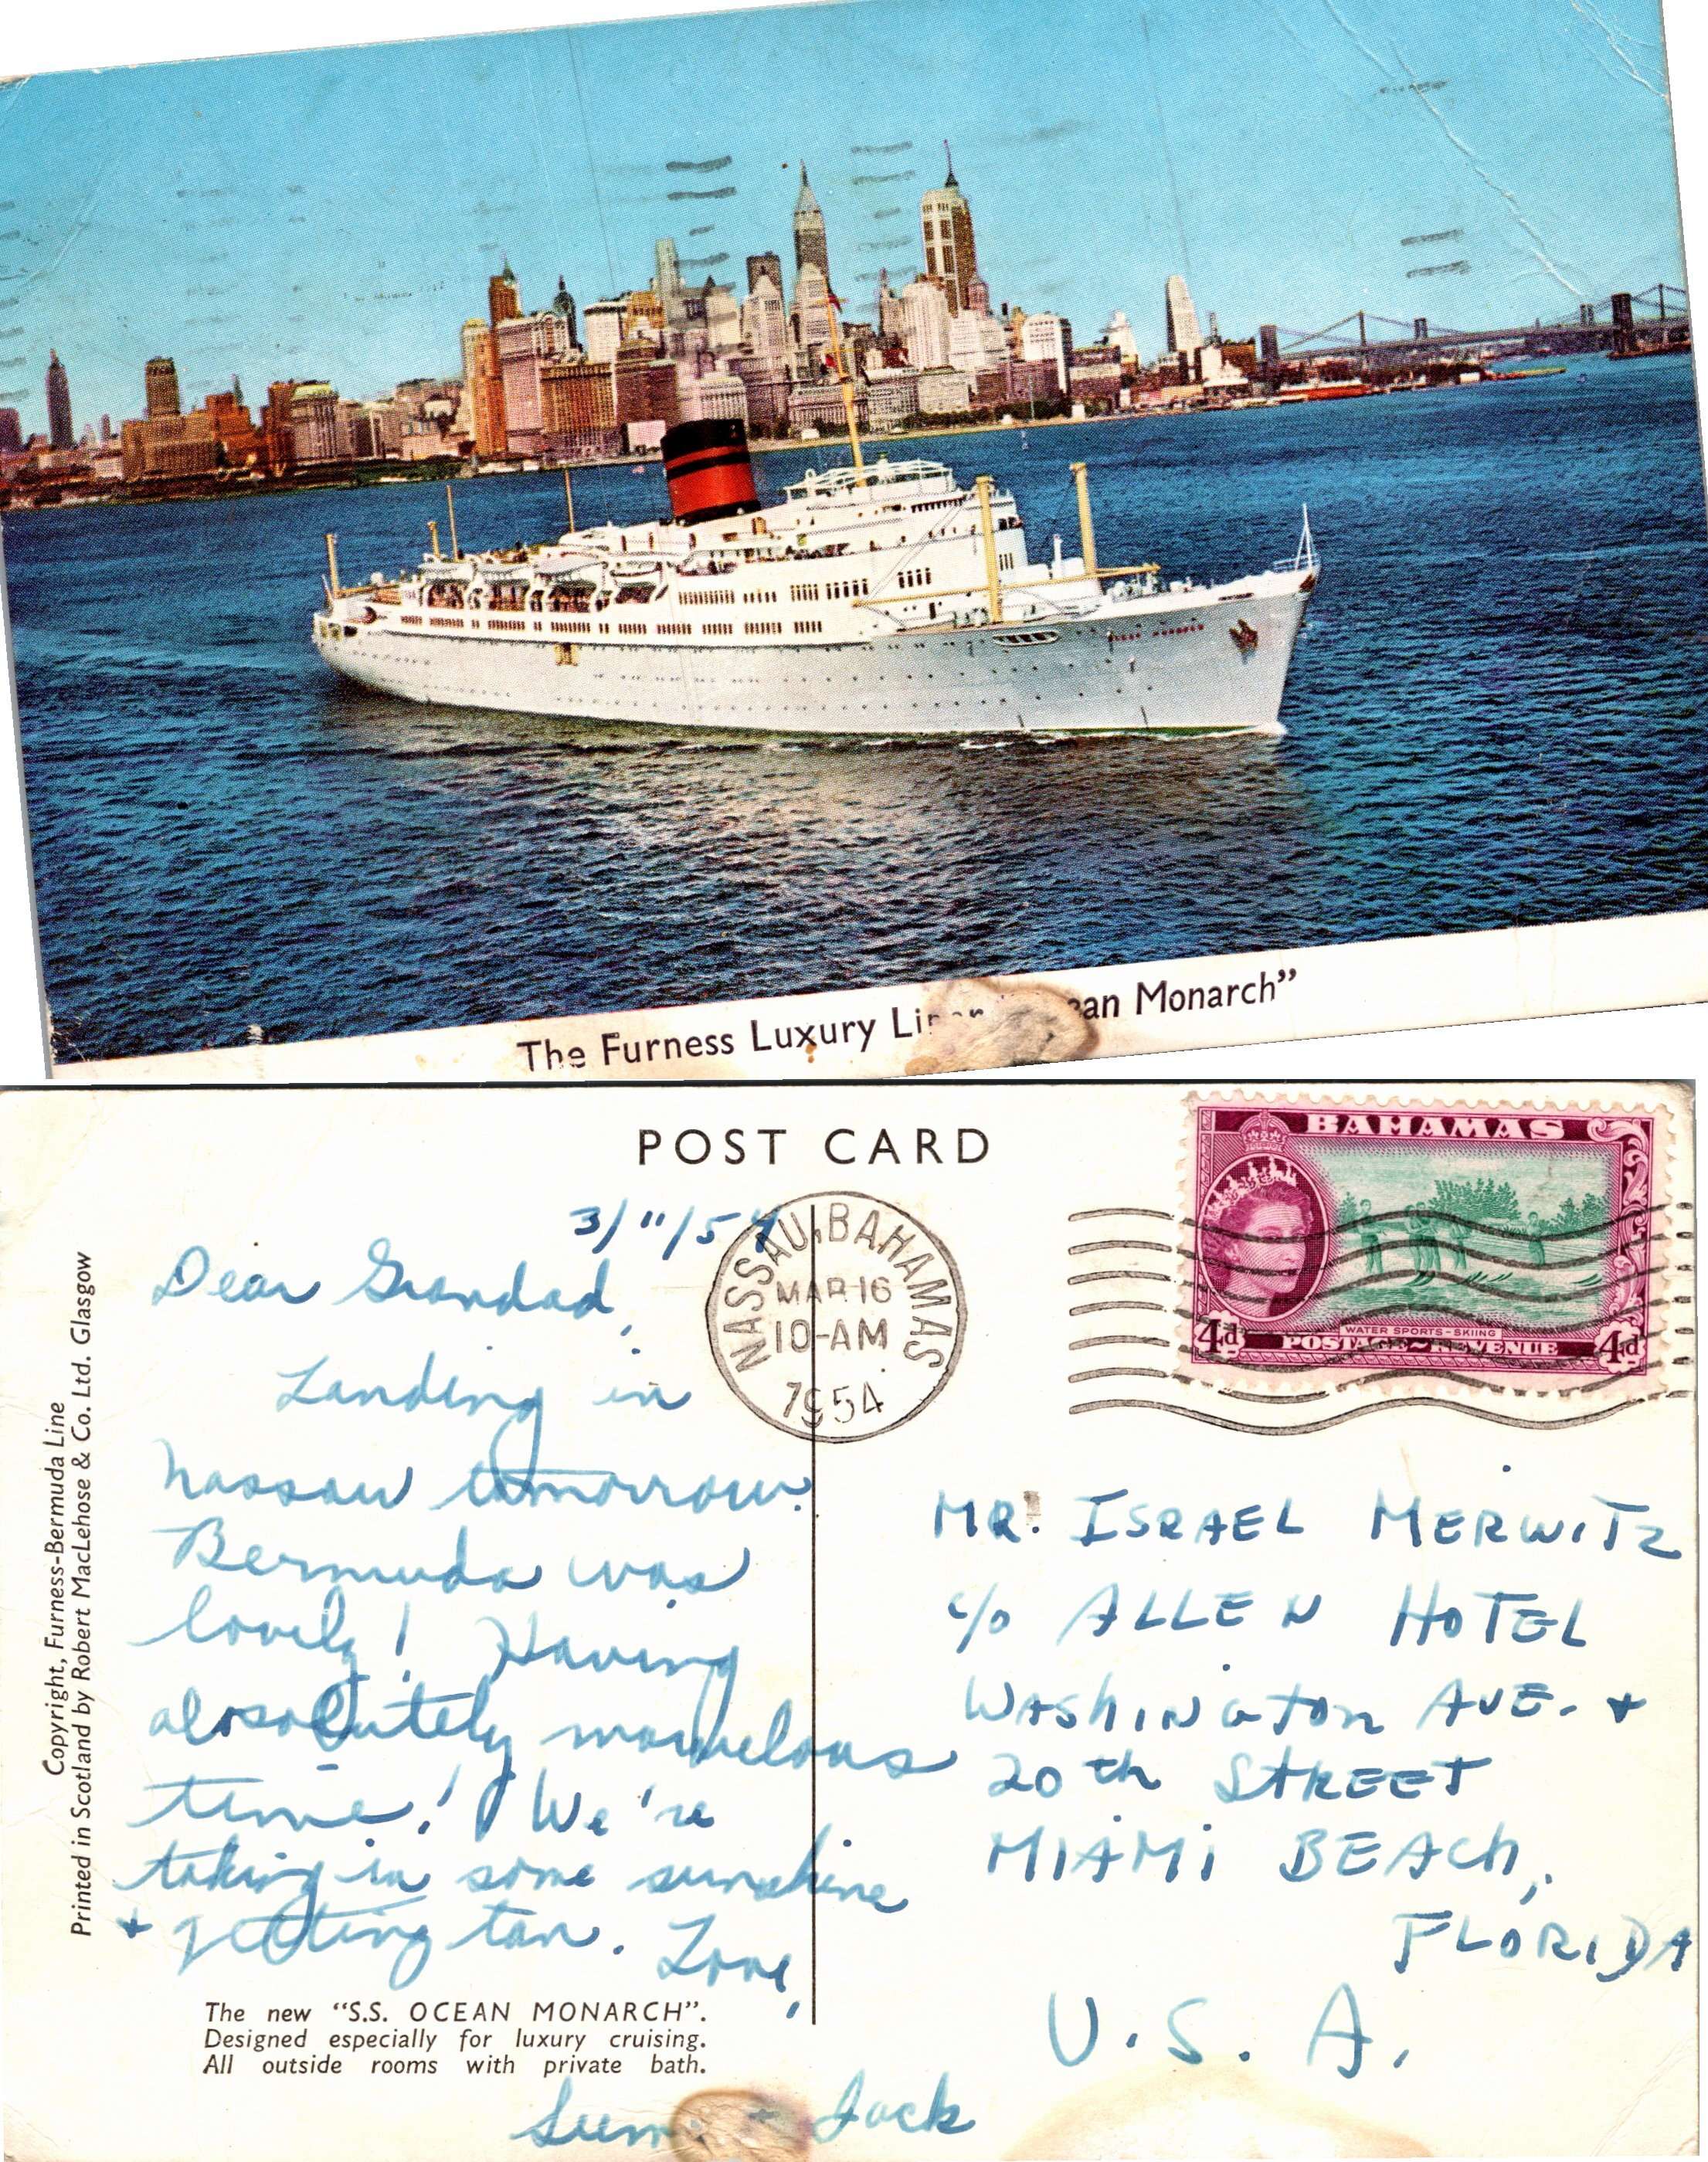 The Furness Luxury Liner "Ocean Monarch"
POST CARD
BAHAMAS
4d
WATER SPORTS-SKIING
POSTAGE & REVENUE
4d
NASSAU, BAHAMAS
MAR 16
10-AM
1954
3/11/54
Dear Grandad,
Landing in
Nassau tomorrow.
Bermuda was
lovely! Having
absolutely marvelous
time! We're
taking in some sunshine
+ getting tan. Love,
+ Jack
The new "S.S. OCEAN MONARCH".
Designed especially for luxury cruising.
All outside rooms with private bath.
Copyright, Furness-Bermuda Line
Printed in Scotland by Robert MacLehose & Co. Ltd. Glasgow
MR. ISRAEL MERWITZ
c/o ALLEN HOTEL
WASHINGTON AVE. +
20th STREET
MIAMI BEACH,
FLORIDA
U.S.A.